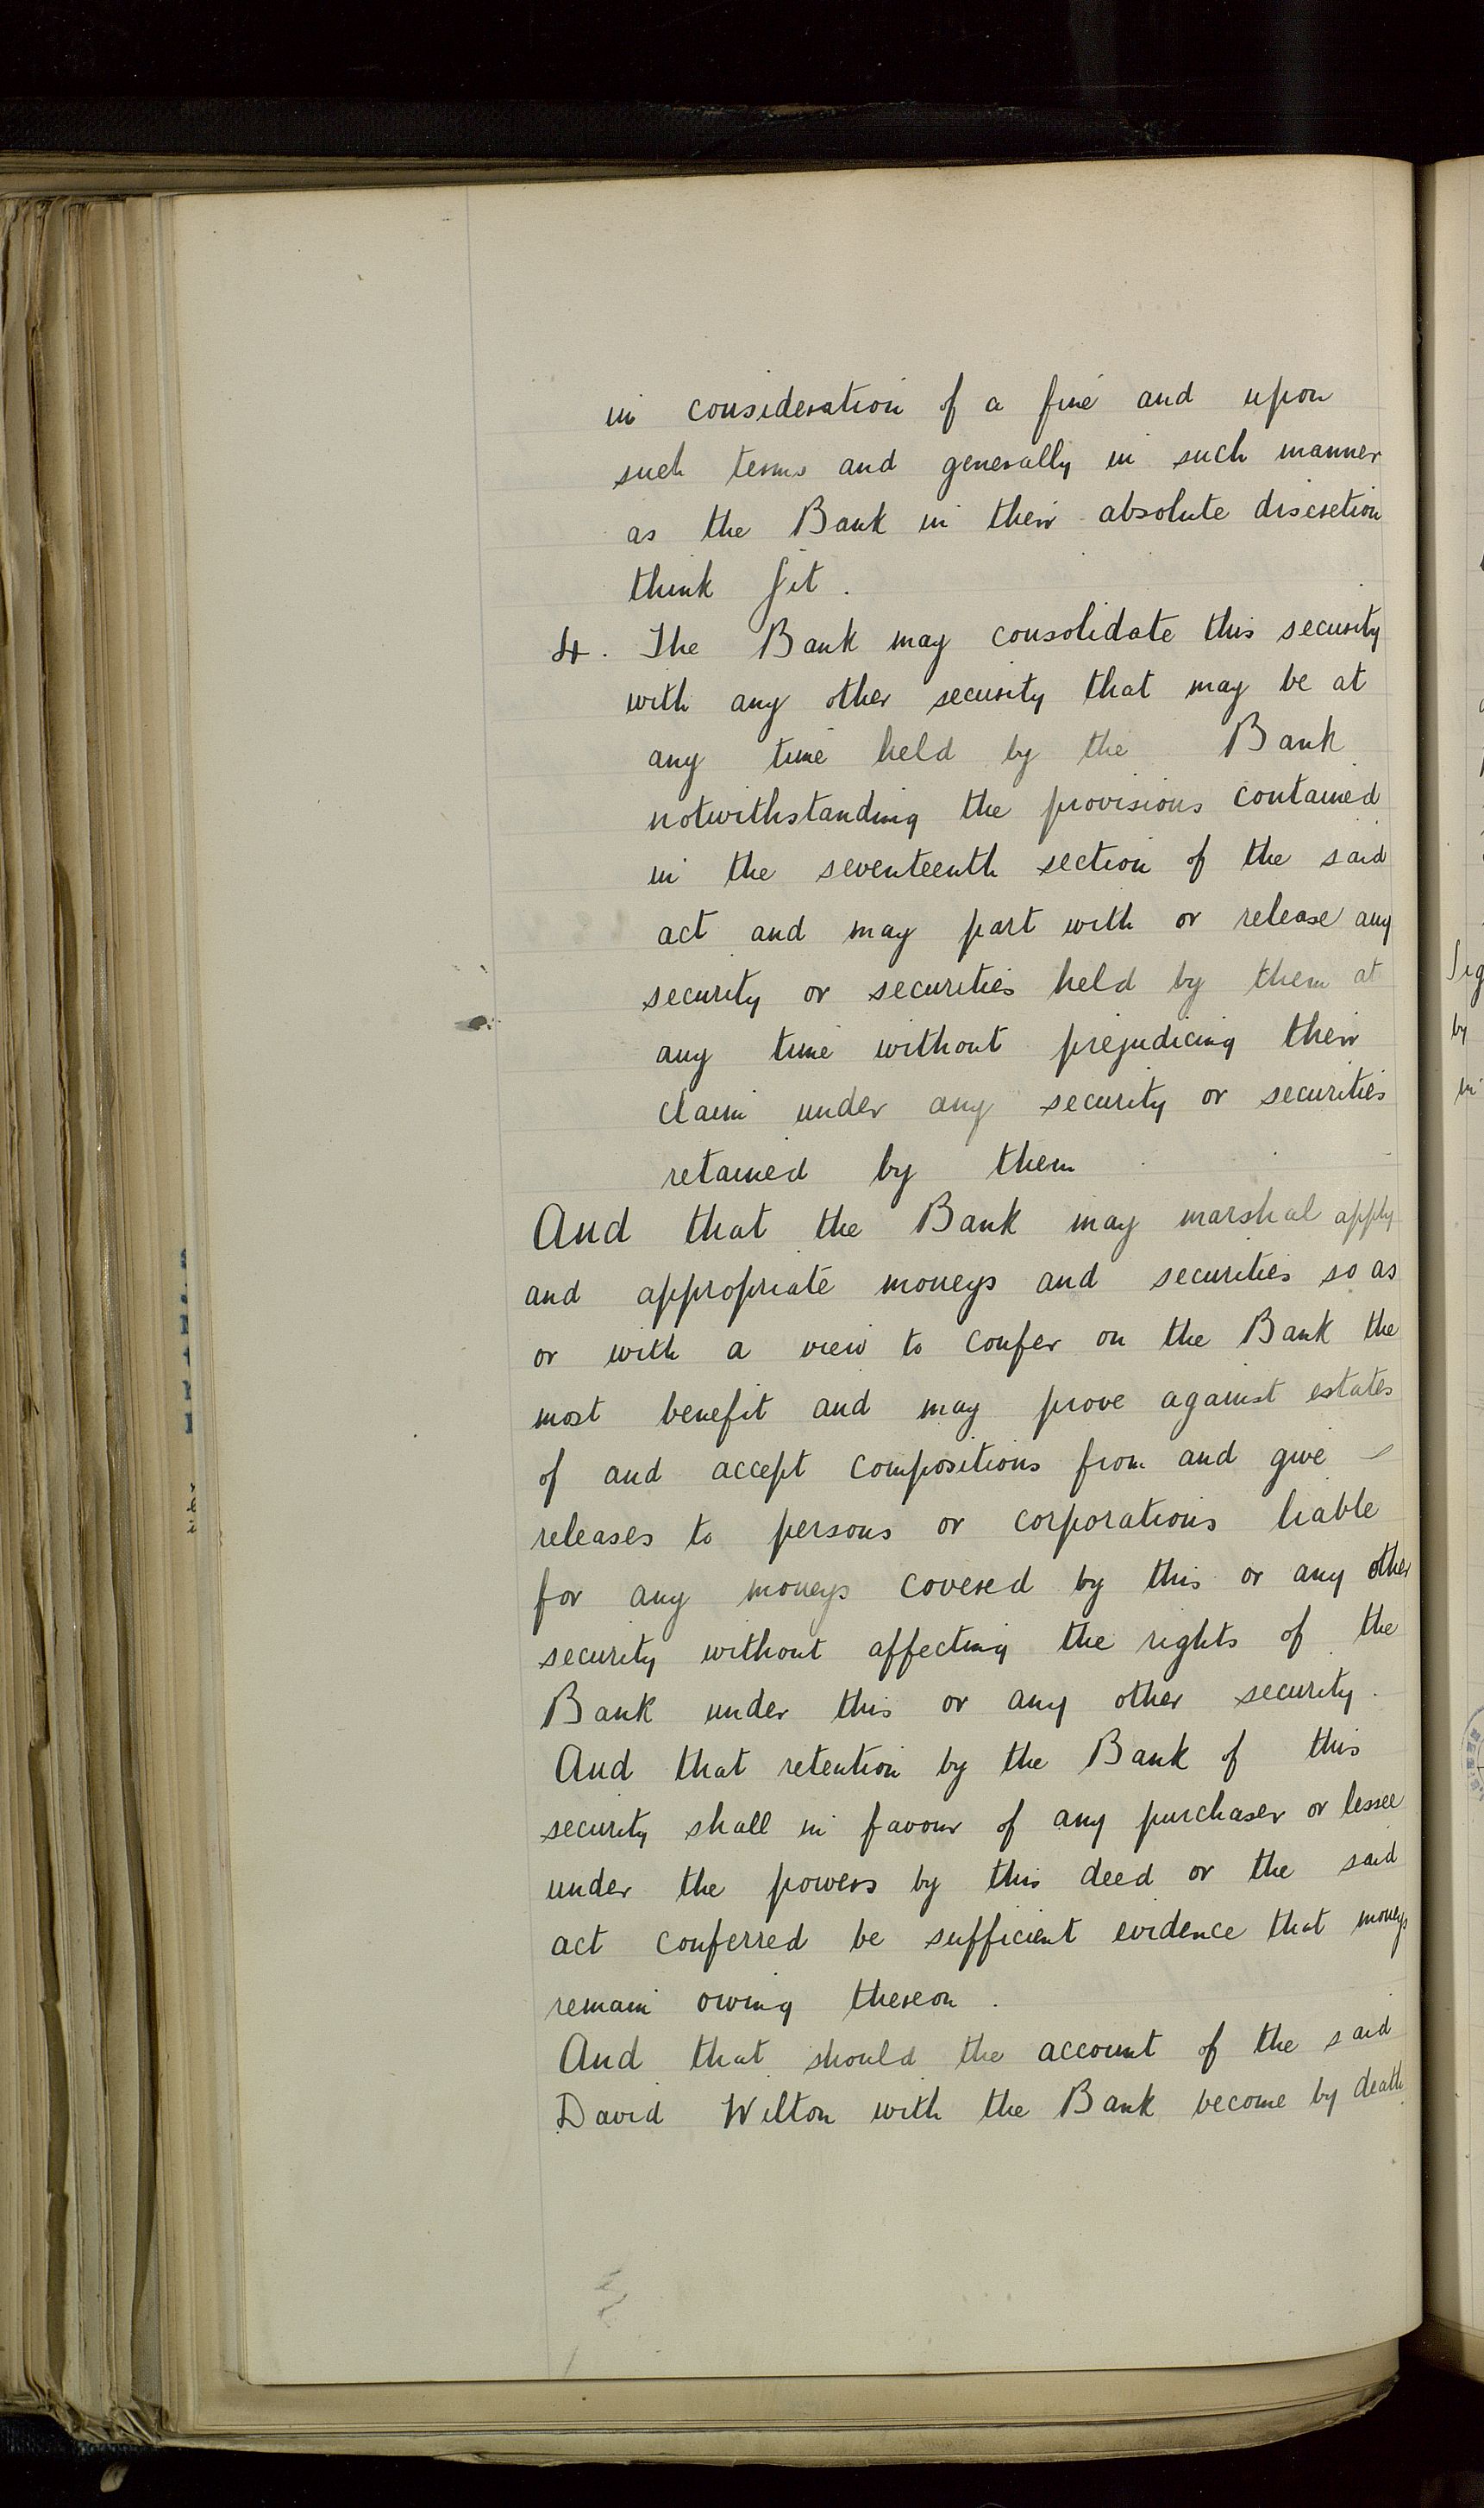 in consideration of a fine and upon
such terms and generally in such manner
as the Bank in their absolute discretion
think fit.
4. The Bank may consolidate this security
with any other security that may be at
any time held by the Bank
notwithstanding the provisions contained
in the seventeenth section of the said
act and may part with or release any
security or securities held by them at
any time without prejudicing their
claim under any security or securities
retained by them
And that the Bank may marshal apply
and appropriate moneys and securities so as
or with a view to confer on the Bank the
most benefit and may prove against estates
of and accept compositions from and give
releases to persons or corporations liable
for any moneys covered by this or any other
security without affecting the rights of the
Bank under this or any other security.
And that retention by the Bank of this
security shall in favour of any purchaser or lessee
under the powers by this deed or the said
act conferred be sufficient evidence that moneys
remain owing thereon.
And that should the account of the said
David Wilton with the Bank become by death